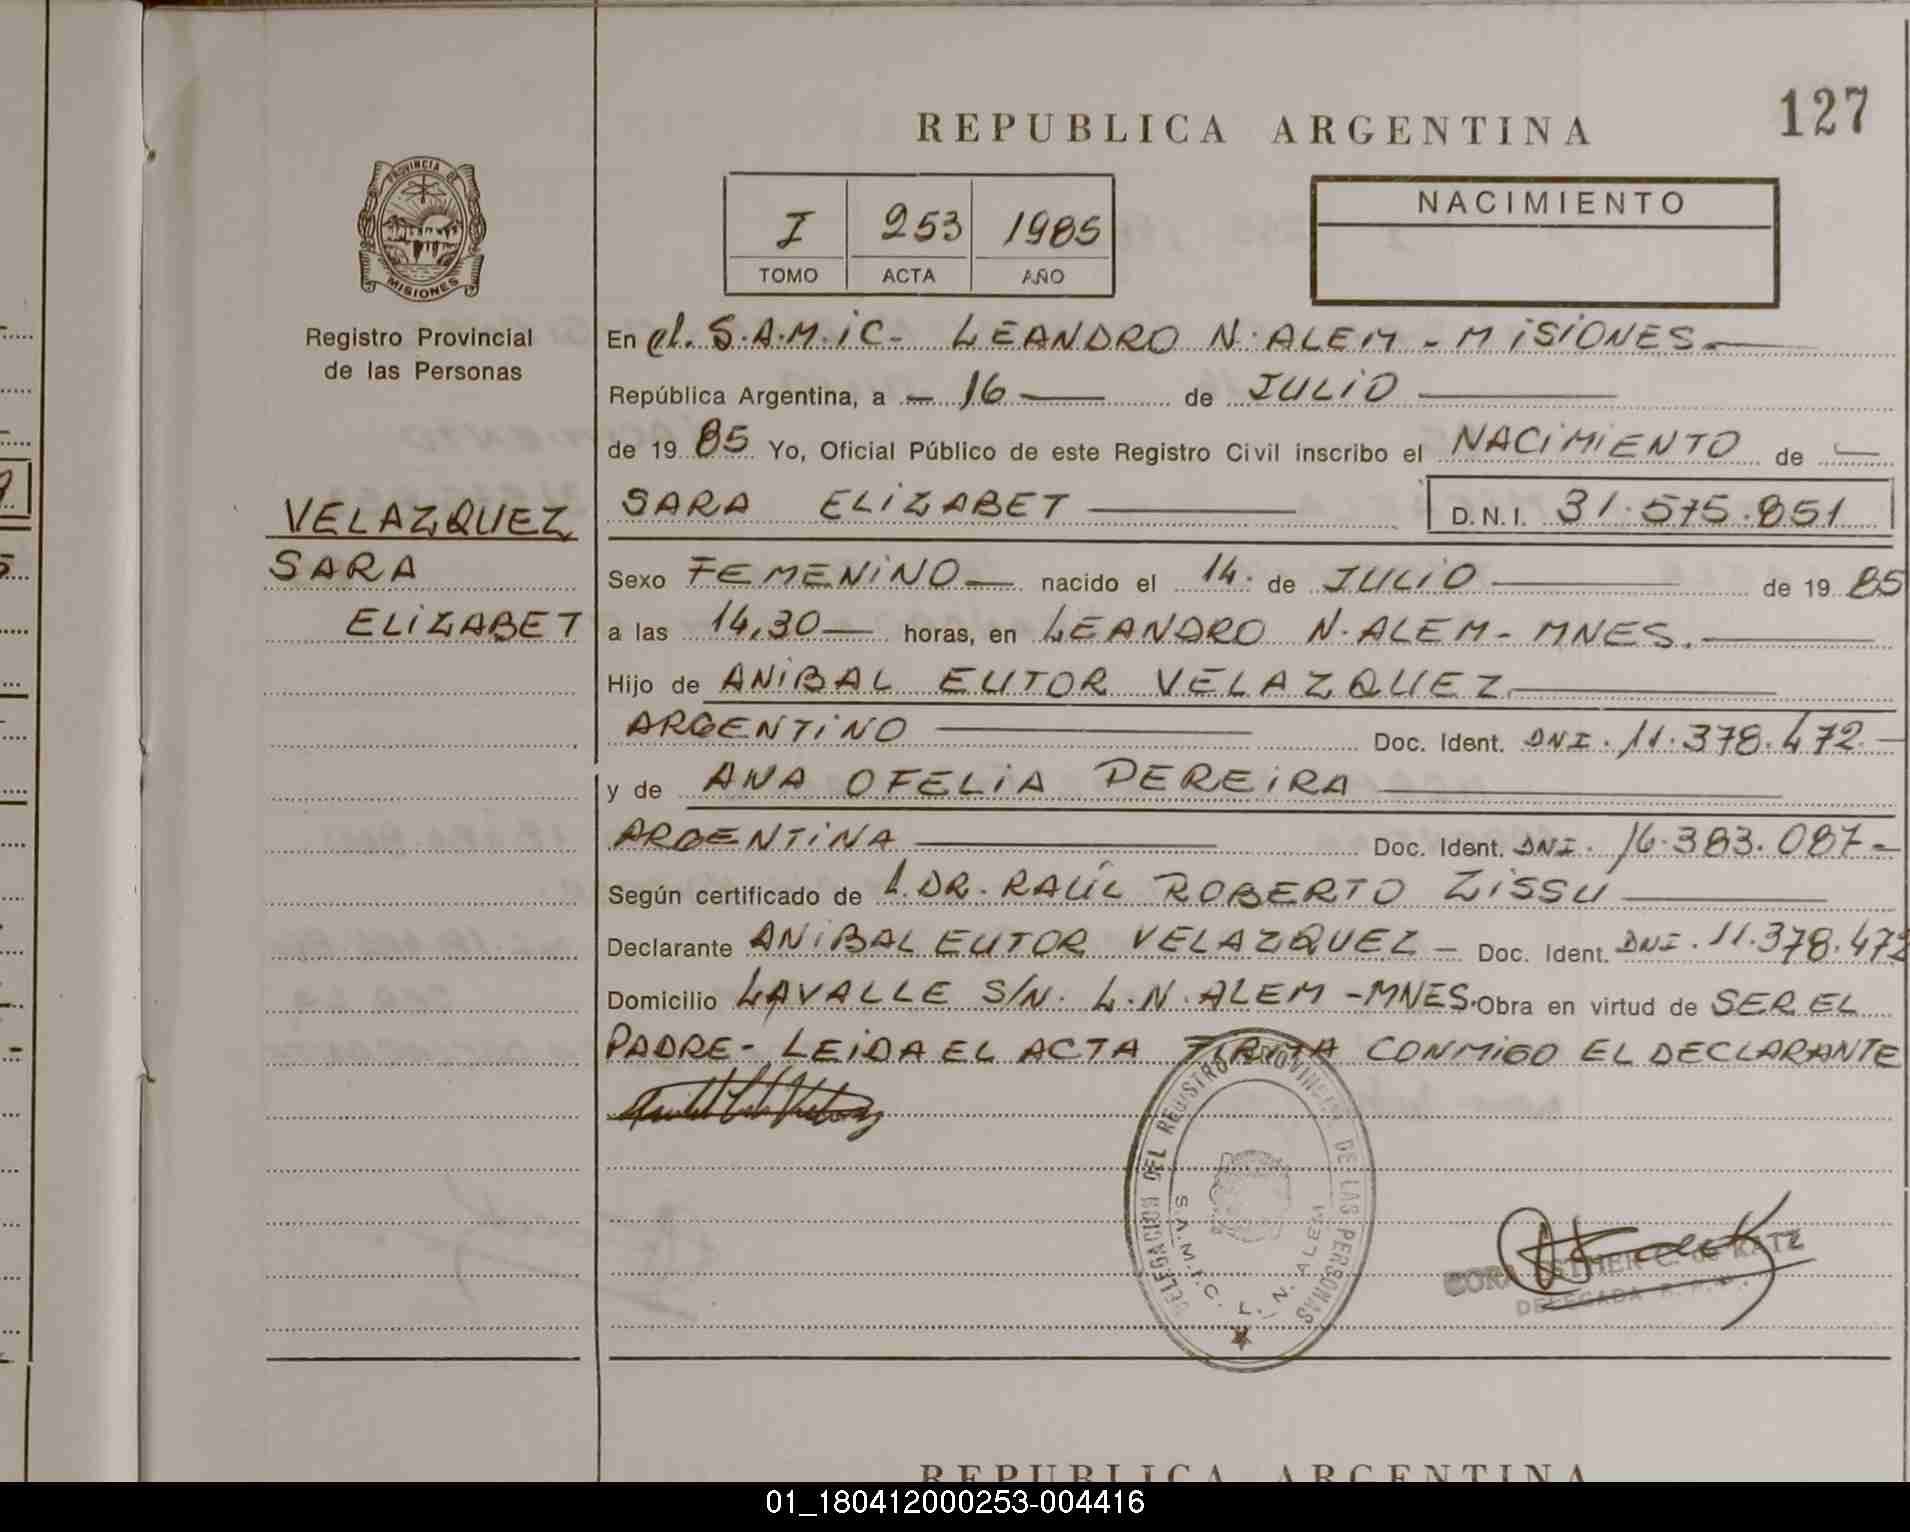 REPUBLICA ARGENTINA
127
PROVINCIA DE
MISIONES
Registro Provincial
de las Personas
I 253 1985
TOMO ACTA AÑO
NACIMIENTO
En el. S.A.M.iC. LEANDRO N. ALEM - MiSiONES
República Argentina, a - 16 de JULiO
de 19 85 Yo, Oficial Público de este Registro Civil inscribo el NACiMiENTO de
SARA ELiZABET D.N.I. 31.575.851
VELAZQUEZ
SARA
ELiZABET
Sexo FEMENiNO nacido el 14. de JULiO de 19 85
a las 14,30 horas, en LEANDRO N. ALEM - MNES.
Hijo de ANiBAL EUTOR VELAZQUEZ
ARGENTiNO Doc. Ident. DNI. 11.378.472
y de ANA OFELiA PEREiRA
ARGENTiNA Doc. Ident. DNI. 16.383.087-
Según certificado de L. DR. RAÚL ROBERTO ZiSSU
Declarante ANiBAL EUTOR VELAZQUEZ - Doc. Ident. DNI. 11.378.472
Domicilio LAVALLE S/N. L.N. ALEM - MNES. Obra en virtud de SER EL
PADRE - LEiDA EL ACTA FiRMA CONMiGO EL DECLARANTE
DELEGACION DEL REGISTRO PROVINCIAL DE LAS PERSONAS
S.A.M.I.C. L. N. ALEM
ESTHER C. de KATZ
DELEGADA R. P. P.
REPUBLICA ARGENTINA
01_180412000253-004416